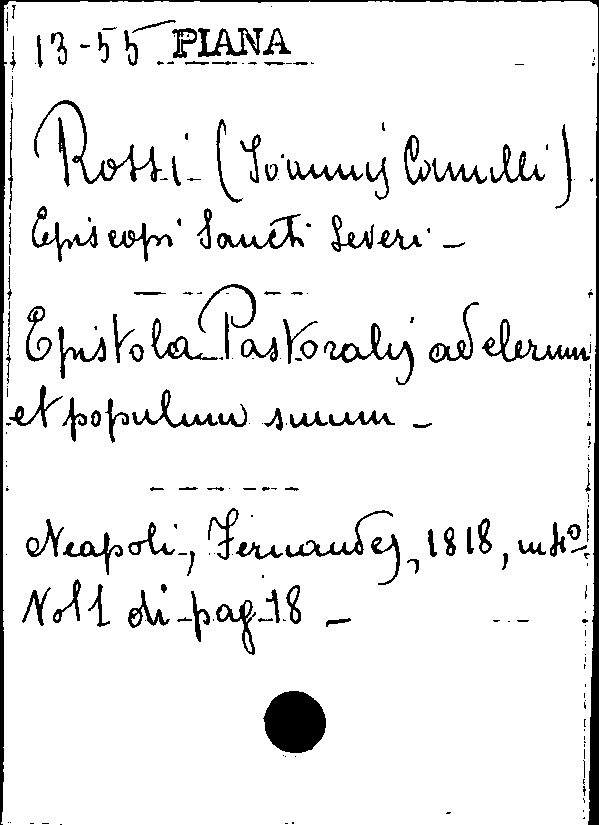 13-55 PIANA
Rossi (Ioannis Camilli)
Episcopi Sancti Severi -
Epistola Pastoralis ad clerum
et populum suum -
Neapoli, Fernandes, 1818, in 4°
Vol 1 di pag 18 -